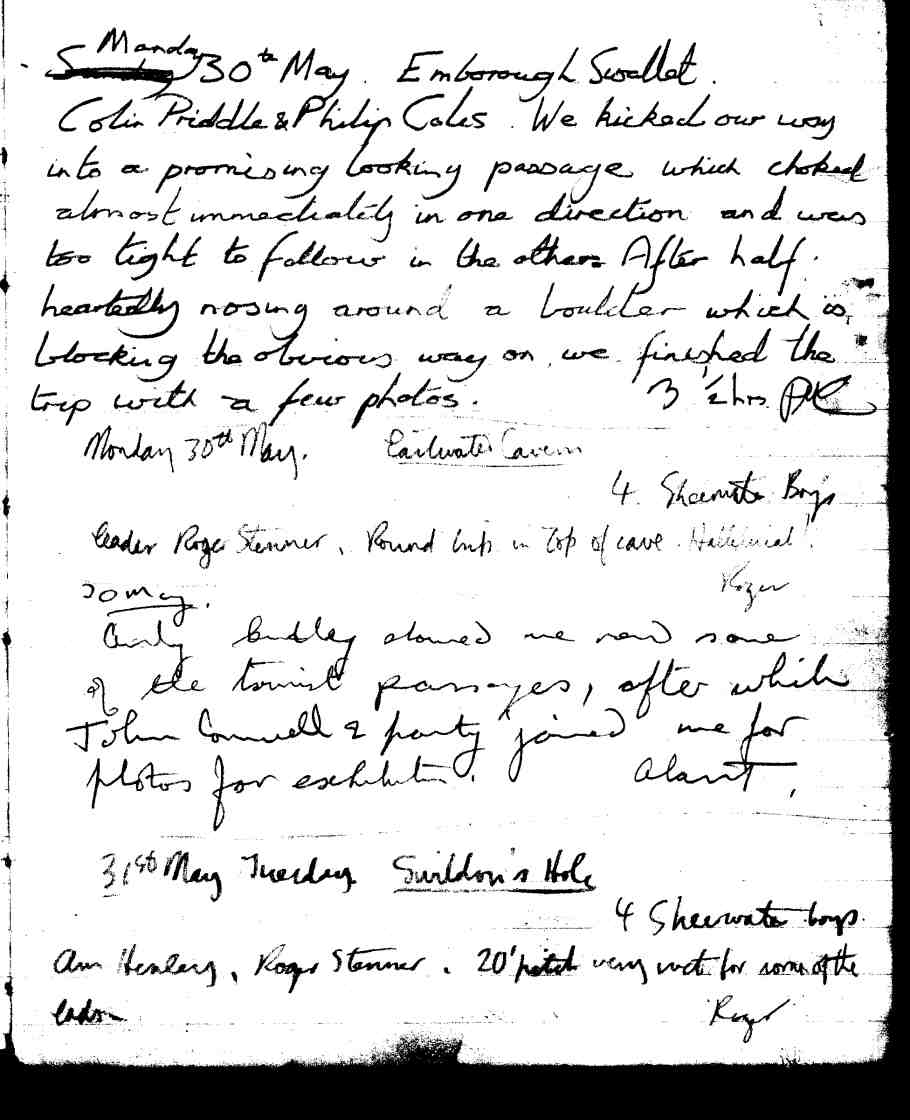 Monday
Sunday 30th May. Emborough Swallet.
Colin Priddle & Philip Coles. We kicked our way
into a promising looking passage which choked
almost immediately in one direction and was
too tight to follow in the other. After half
heartedly nosing around a boulder which is
blocking the obvious way on, we finished the
trip with a few photos. 3 1/2 hrs.
Monday 30th May. Cavern
4 Sheerwater Boys
leader Roger Stenner. Round trip in top of cave.
Roger
30 May.
showed me some
of the tourist passages, after which
John Connell & party joined me for
photos for exhibition. Alan T.
31st May Tuesday Swildon's Hole
4 Sheerwater boys.
Ann Henley, Roger Stenner. 20' pitch very wet for some of the
Roger